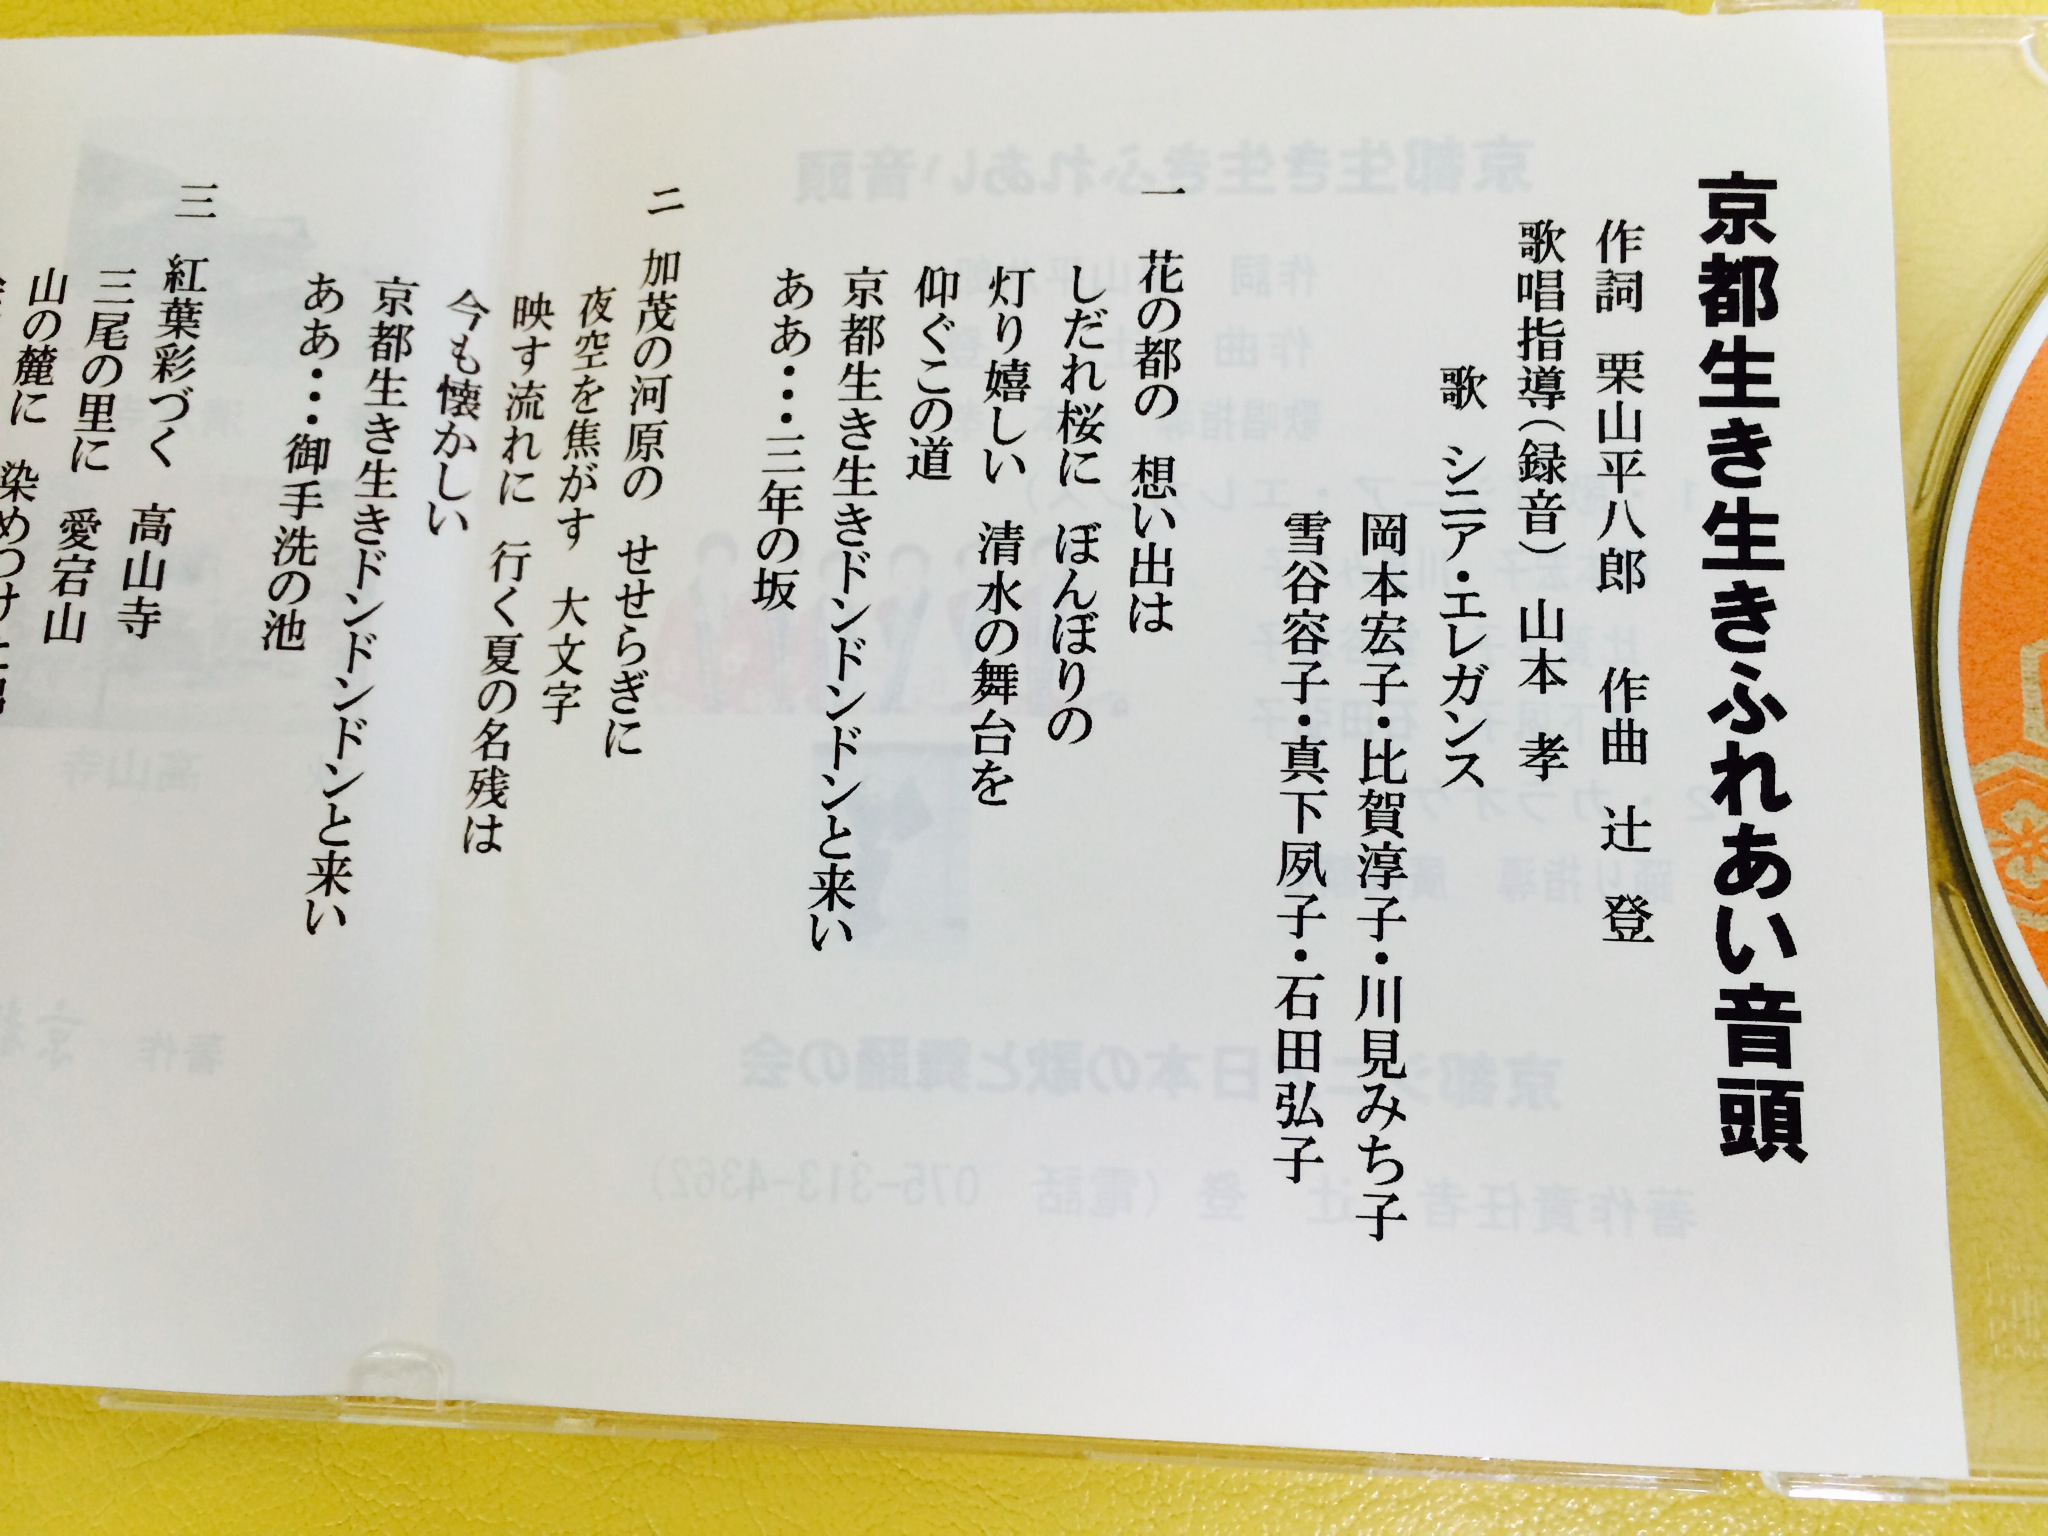 京都生き生きふれあい音頭
作詞 栗山平八郎 作曲 辻 登
歌唱指導(録音) 山本 孝
歌 シニア・エレガンス
岡本宏子・比賀淳子・川見みち子
雪谷容子・真下夙子・石田弘子
一 花の都の 想い出は
しだれ桜に ぼんぼりの
灯り嬉しい 清水の舞台を
仰ぐこの道
京都生き生きドンドンドンと来い
ああ・・・三年の坂
二 加茂の河原の せせらぎに
夜空を焦がす 大文字
映す流れに 行く夏の名残は
今も懐かしい
京都生き生きドンドンドンと来い
ああ・・・御手洗の池
三 紅葉彩づく 高山寺
三尾の里に 愛宕山
山の麓に 染めつけ
京都シニア日本の歌と舞踊の会
著作責任者 辻 登 (電話 075-313-4362)